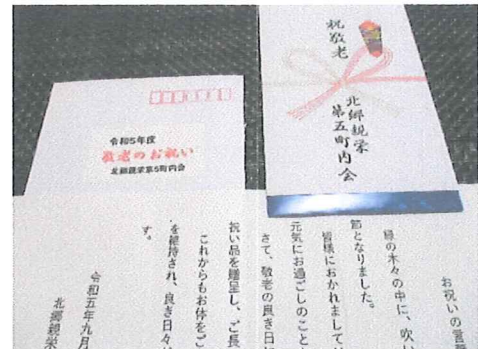 令和5年度
敬老のお祝い
北郷親栄第5町内会
祝敬老
北郷親栄
第五町内会
お祝いの言
緑の木々の中に、吹
節となりました。
皆様におかれまして
元気にお過ごしのこと
さて、敬老の良き日
祝い品を贈呈し、ご長
これからもお体をご
を維持され、良き日々
す。
令和五年九月
北郷親栄